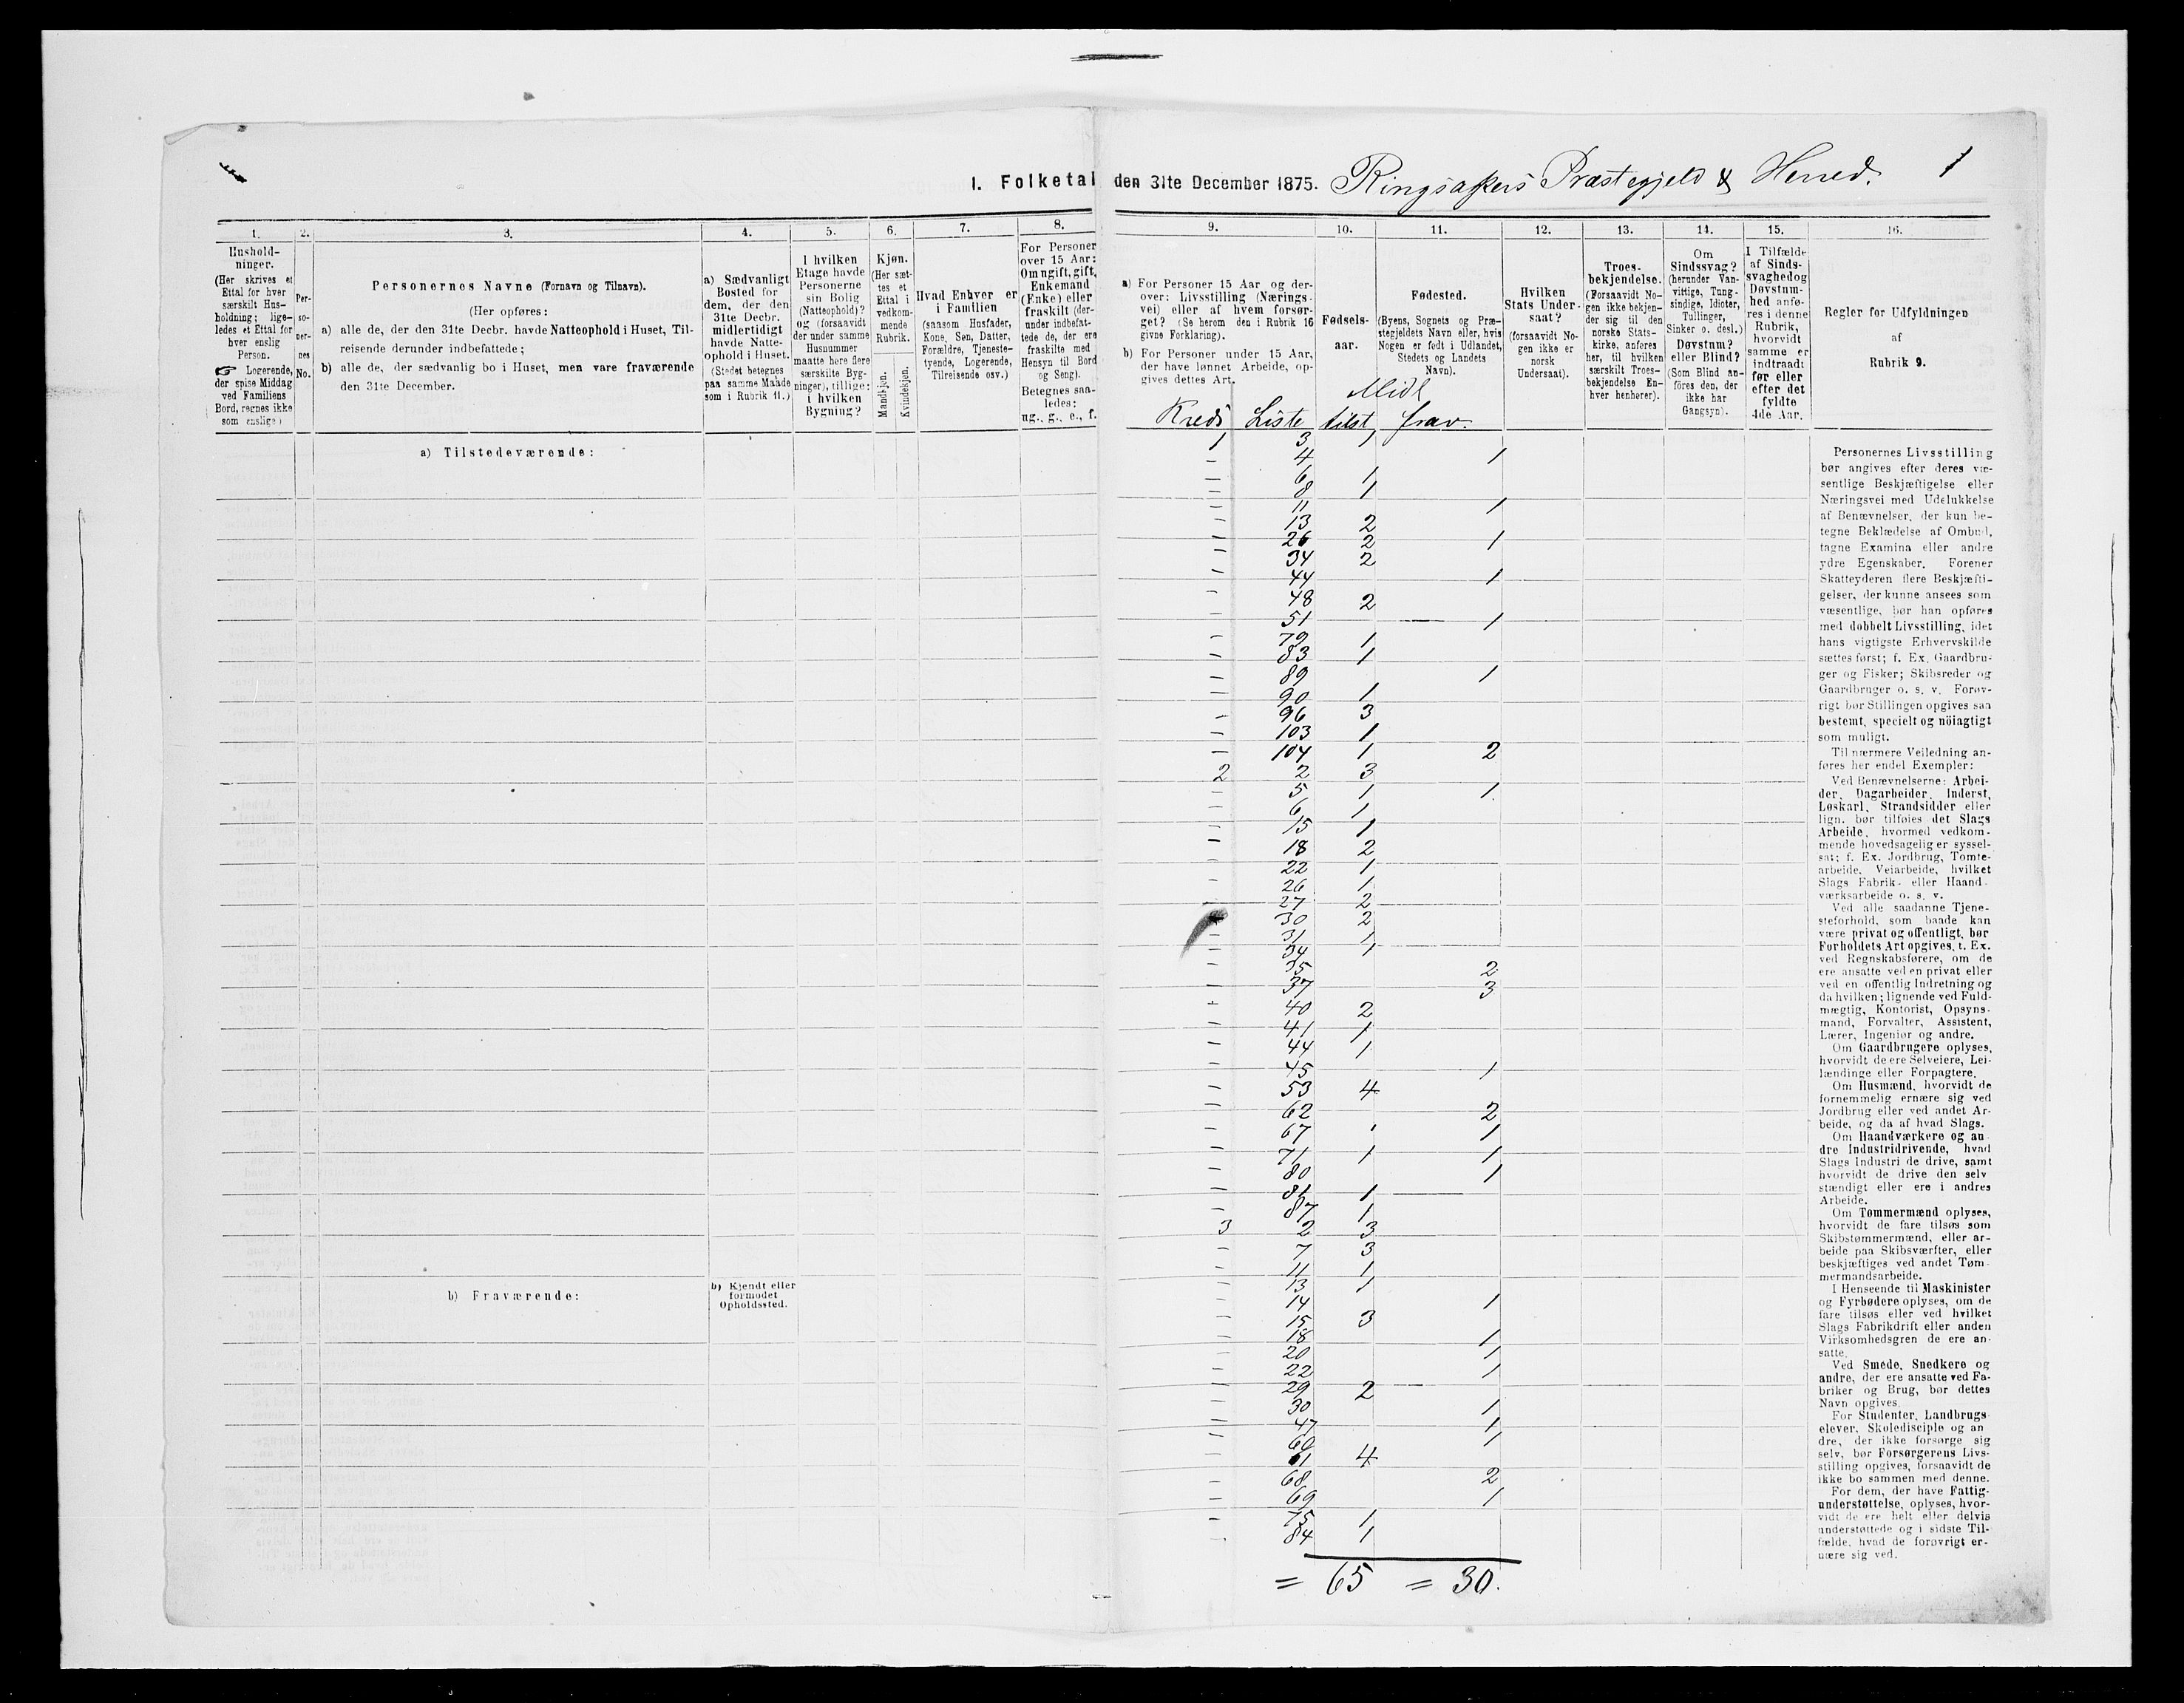 I. Folketal den 31te December 1875. Ringsakers Præstegjeld & Herred. 1
1.
Hushold-
ninger.
(Her skrives et
Ettal for hver
særskilt Hus-
holdning; lige-
ledes et Ettal for
hver enslig
Person.
☞ Logerende,
der spise Middag
ved Familiens
Bord, regnes ikke
som enslige)
2.
Per-
so-
ner-
nes
No.
3.
Personernes Navne (Fornavn og Tilnavn).
(Her opføres:
a) alle de, der den 31te Decbr. havde Natteophold i Huset, Til-
reisende derunder indbefattede;
b) alle de, der sædvanlig bo i Huset, men vare fraværende
den 31te December.
4.
a) Sædvanligt
Bosted for
dem, der den
31te Decbr.
midlertidigt
havde Natte-
ophold i Huset.
(Stedet betegnes
paa samme Maade
som i Rubrik 11.)
5.
I hvilken
Etage havde
Personerne
sin Bolig
(Natteophold)?
og (forsaavidt
der under samme
Husnummer
maatte høre flere
særskilte Byg-
ninger), tillige:
i hvilken
Bygning?
6.
Kjøn.
(Her sæt-
tes et
Ettal i
vedkom-
mende
Rubrik.
Mandkjøn.
Kvindekjøn.
7.
Hvad Enhver er
i Familien
(saasom Husfader,
Kone, Søn, Datter,
Forældre, Tjeneste-
tyende, Logerende,
Tilreisende osv.)
8.
For Personer
over 15 Aar:
Om ugift, gift,
Enkemand
(Enke) eller
fraskilt (der-
under indbefat-
tede de, der ere
fraskilte med
Hensyn til Bord
og Seng).
Betegnes saa-
ledes:
ug., g., e., f.
9.
a) For Personer 15 Aar og der-
over: Livsstilling (Nærings-
vei) eller af hvem forsør-
get? (Se herom den i Rubrik 16
givne Forklaring).
b) For Personer under 15 Aar,
der have lønnet Arbeide, op-
gives dettes Art.
10.
Fødsels-
aar.
11.
Fødested.
(Byens, Sognets og Præ-
stegjeldets Navn eller, hvis
Nogen er født i Udlandet,
Stedets og Landets
Navn).
12.
Hvilken
Stats Under-
saat?
(forsaavidt No-
gen ikke er
norsk
Undersaat).
13.
Troes-
bekjendelse.
(Forsaavidt No-
gen ikke bekjen-
der sig til den
norske Stats-
kirke, anføres
her, til hvilken
særskilt Troes-
bekjendelse En-
hver henhører).
14.
Om
Sindssvag?
(herunder Van-
vittige, Tung-
sindige, Idioter,
Tullinger,
Sinker o. desl.)
Døvstum?
eller Blind?
(Som Blind an-
føres den, der
ikke har
Gangsyn).
15.
I Tilfælde
af Sinds-
svaghed og
Døvstum-
hed anfø-
res i denne
Rubrik,
hvorvidt
samme er
indtraadt
før eller
efter det
fyldte
4de Aar.
16.
Regler for Udfyldningen
af
Rubrik 9.
Midl
Kreds Liste tilst frav.
a) Tilstedeværende:
1 3 1
- 4 1
- 6 1
- 8 1
- 11 1
- 13 2
- 26 2 1
- 34 2
- 44 1
- 48 2
- 51 1
- 79 1
- 83 1
- 89 1
- 90 1
- 96 3
- 103 1
- 104 1 2
2 2 3
- 5 1 1
- 6 1
- 15 1
- 18 2
- 22 1
- 26 1
- 27 2
- 30 2
- 31 1
- 34 1
- 35 2
- 37 3
- 40 2
- 41 1
- 44 1
- 45 1
- 53 4
- 62 2
- 67 1
- 71 1 1
- 80 1
- 1
- 87 1
3 2 3
- 7 3
- 11 1
- 13 1
- 14 1
- 15 3
- 18 1
- 20 1
- 22 1
- 29 2
- 30 1
- 47 1
- 60 1
- 61 4
- 68 2
- 69 1
- 75 1
- 84 1
= 65 = 30.
b) Fraværende:
b) Kjendt eller
formodet
Opholdssted.
Personernes Livsstilling
bør angives efter deres væ-
sentlige Beskjæftigelse eller
Næringsvei med Udelukkelse
af Benævnelser, der kun be-
tegne Beklædelse af Ombud,
tagne Examina eller andre
ydre Egenskaber. Forener
Skatteyderen flere Beskjæfti-
gelser, der kunne ansees som
væsentlige, bør han opføres
med dobbelt Livsstilling, idet
hans vigtigste Erhvervskilde
sættes først; f. Ex. Gaardbru-
ger og Fisker; Skibsreder og
Gaardbruger o. s. v. Forøv-
rigt bør Stillingen opgives saa
bestemt, specielt og nöiagtigt
som muligt.
Til nærmere Veiledning an-
føres her endel Exempler:
Ved Benævnelserne: Arbei-
der, Dagarbeider, Inderst,
Løskarl, Strandsidder eller
lign. bør tilføies det Slags
Arbeide, hvormed vedkom-
mende hovedsagelig er syssel-
sat; f. Ex. Jordbrug, Tomte-
arbeide, Veiarbeide, hvilket
Slags Fabrik- eller Haand-
værksarbeide o. s. v.
Ved alle saadanne Tjene-
steforhold, som baade kan
være privat og offentligt, bør
Forholdets Art opgives, t. Ex.
ved Regnskabsførere, om de
ere ansatte ved en privat eller
ved en offentlig Indretning og
da hvilken; lignende ved Fuld-
mægtig, Kontorist, Opsyns-
mand, Forvalter, Assistent,
Lærer, Ingeniør og andre.
Om Gaardbrugere oplyses,
hvorvidt de ere Selveiere, Lei-
lændinge eller Forpagtere.
Om Husmænd, hvorvidt de
fornemmelig ernære sig ved
Jordbrug eller ved andet Ar-
beide, og da af hvad Slags.
Om Haandværkere og an-
dre Industridrivende, hvad
Slags Industri de drive, samt
hvorvidt de drive den selv-
stændigt eller ere i andres
Arbeide.
Om Tømmermænd oplyses,
hvorvidt de fare tilsøs som
Skibstømmermænd, eller ar-
beide paa Skibsværfter, eller
beskjæftiges ved andet Tøm-
mermandsarbeide.
I Henseende til Maskinister
og Fyrbødere oplyses, om de
fare tilsøs eller ved hvilket
Slags Fabrikdrift eller anden
Virksomhedsgren de ere an-
satte.
Ved Smede, Snedkere og
andre, der ere ansatte ved Fa-
briker og Brug, bør dettes
Navn opgives.
For Studenter, Landbrugs-
elever, Skoledisciple og an-
dre, der ikke forsørge sig
selv, bør Forsørgerens Livs-
stilling opgives, forsaavidt de
ikke bo sammen med denne.
For dem, der have Fattig-
understøttelse, oplyses, hvor-
vidt de ere helt eller delvis
understøttede og i sidste Til-
fælde, hvad de forøvrigt er-
nære sig ved.